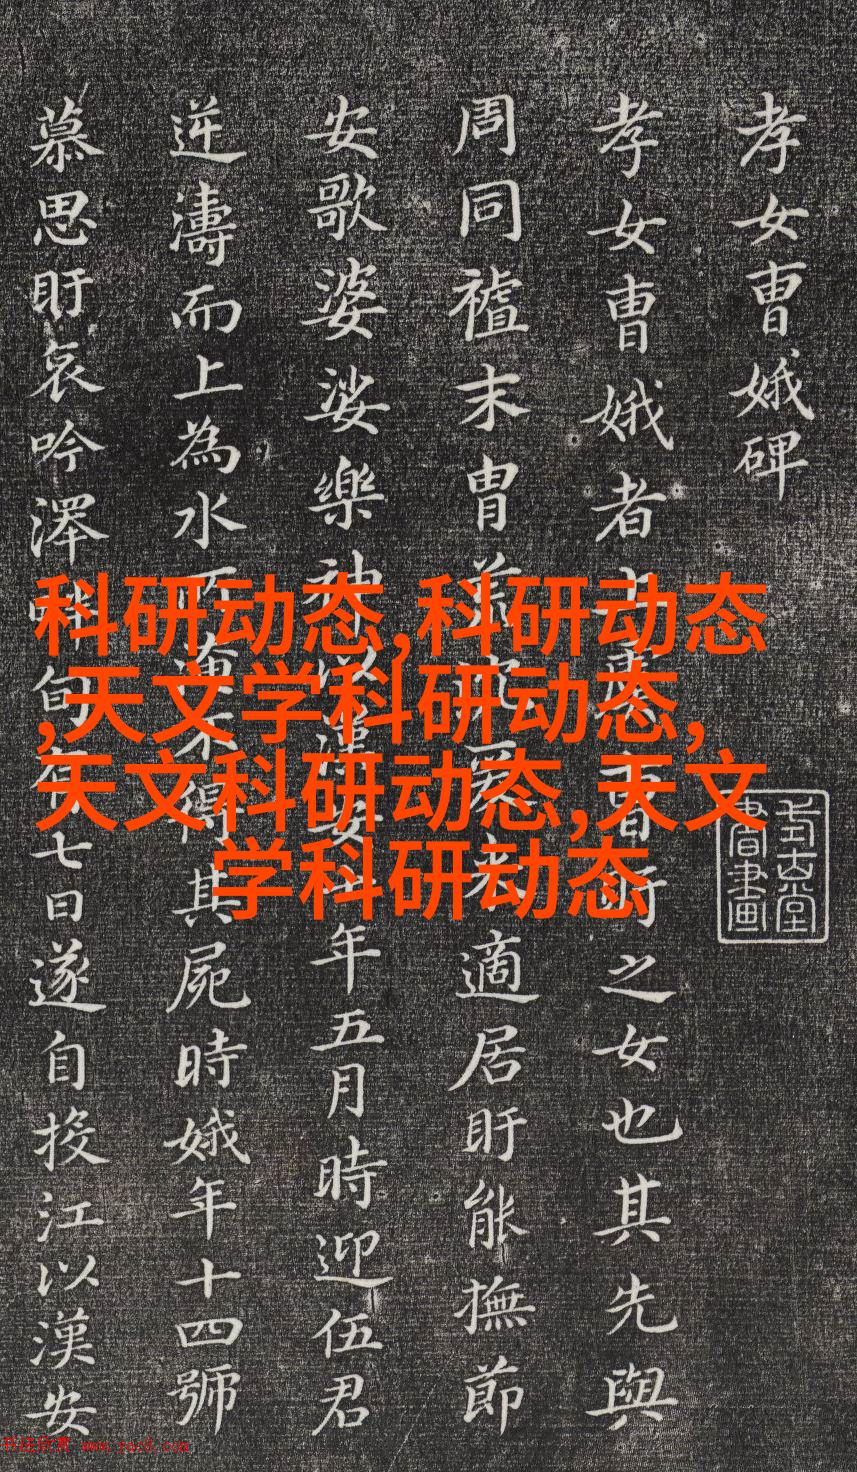 孝女曹娥碑
孝女曹娥者上虞曹盱之女也其先與
周同禋末胄荒沉爰来適居盱能撫節
安歌婆娑樂神以漢安二年五月時迎伍君
逆濤而上為水所淹不得其屍時娥年十四號
慕思盱哀吟澤畔旬有七日遂自投江以漢安
科研动态,科研动态
,天文学科研动态,
天文科研动态,天文
学科研动态
www.rac8.com